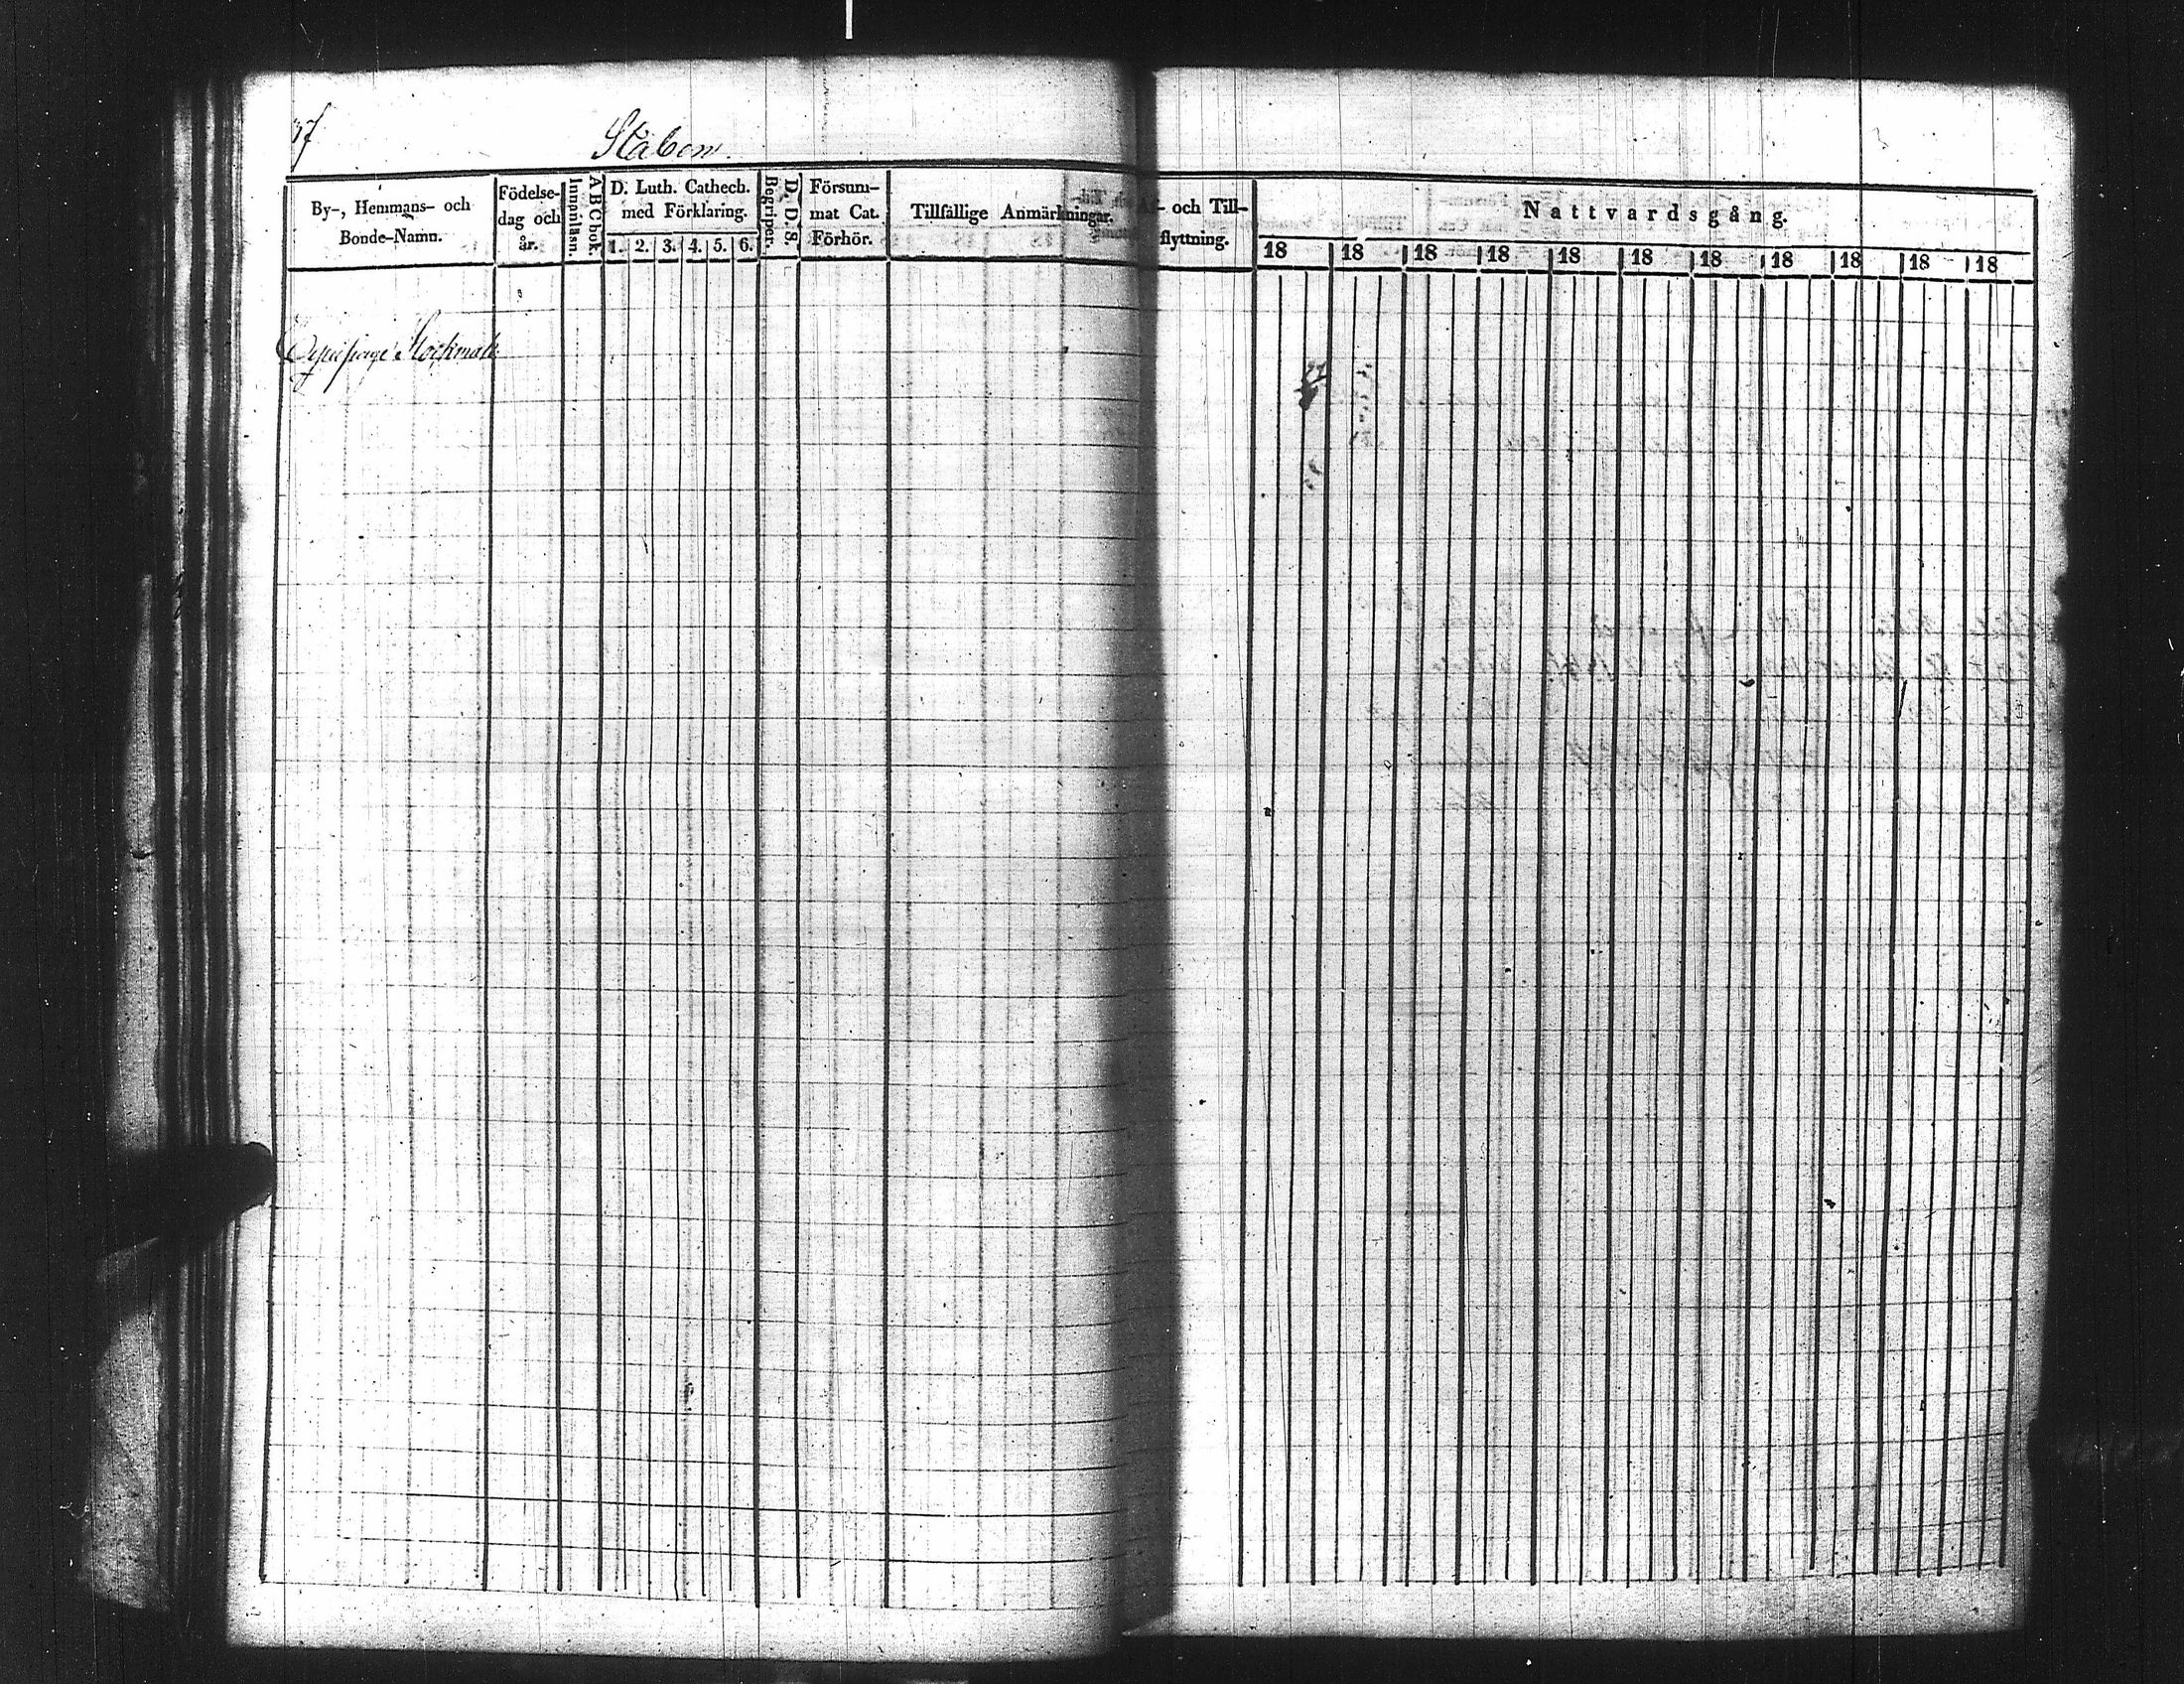 Staben
By-, Hemmans- och
Bonde-Namn.
Födelse-
dag och
år.
Innanläsn.
ABCbok.
D. Luth. Cathech.
med Förklaring.
1. 2. 3. 4. 5. 6.
Begriper.
D. D. S.
Försum-
mat Cat.
Förhör.
Tillfällige Anmärkningar.
och Till-
flyttning.
Nattvardsgång.
18 18 18 18 18 18 18 18 18 18 18